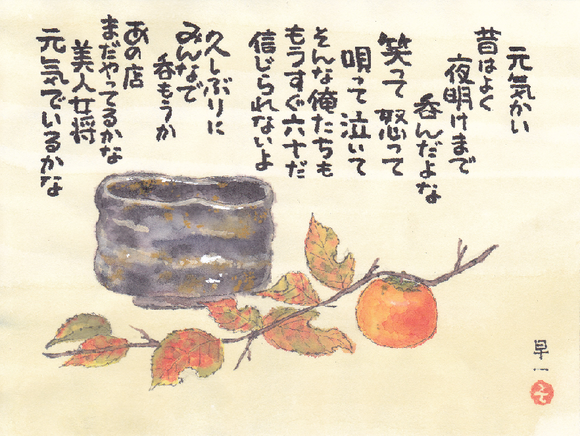 元気かい
昔はよく
夜明けまで
呑んだよな
笑って 怒って
唄って 泣いて
そんな俺たちも
もうすぐ六十だ
信じられないよ
久しぶりに
みんなで
呑もうか
あの店
まだやってるかな
美人女将
元気でいるかな
早一
そ